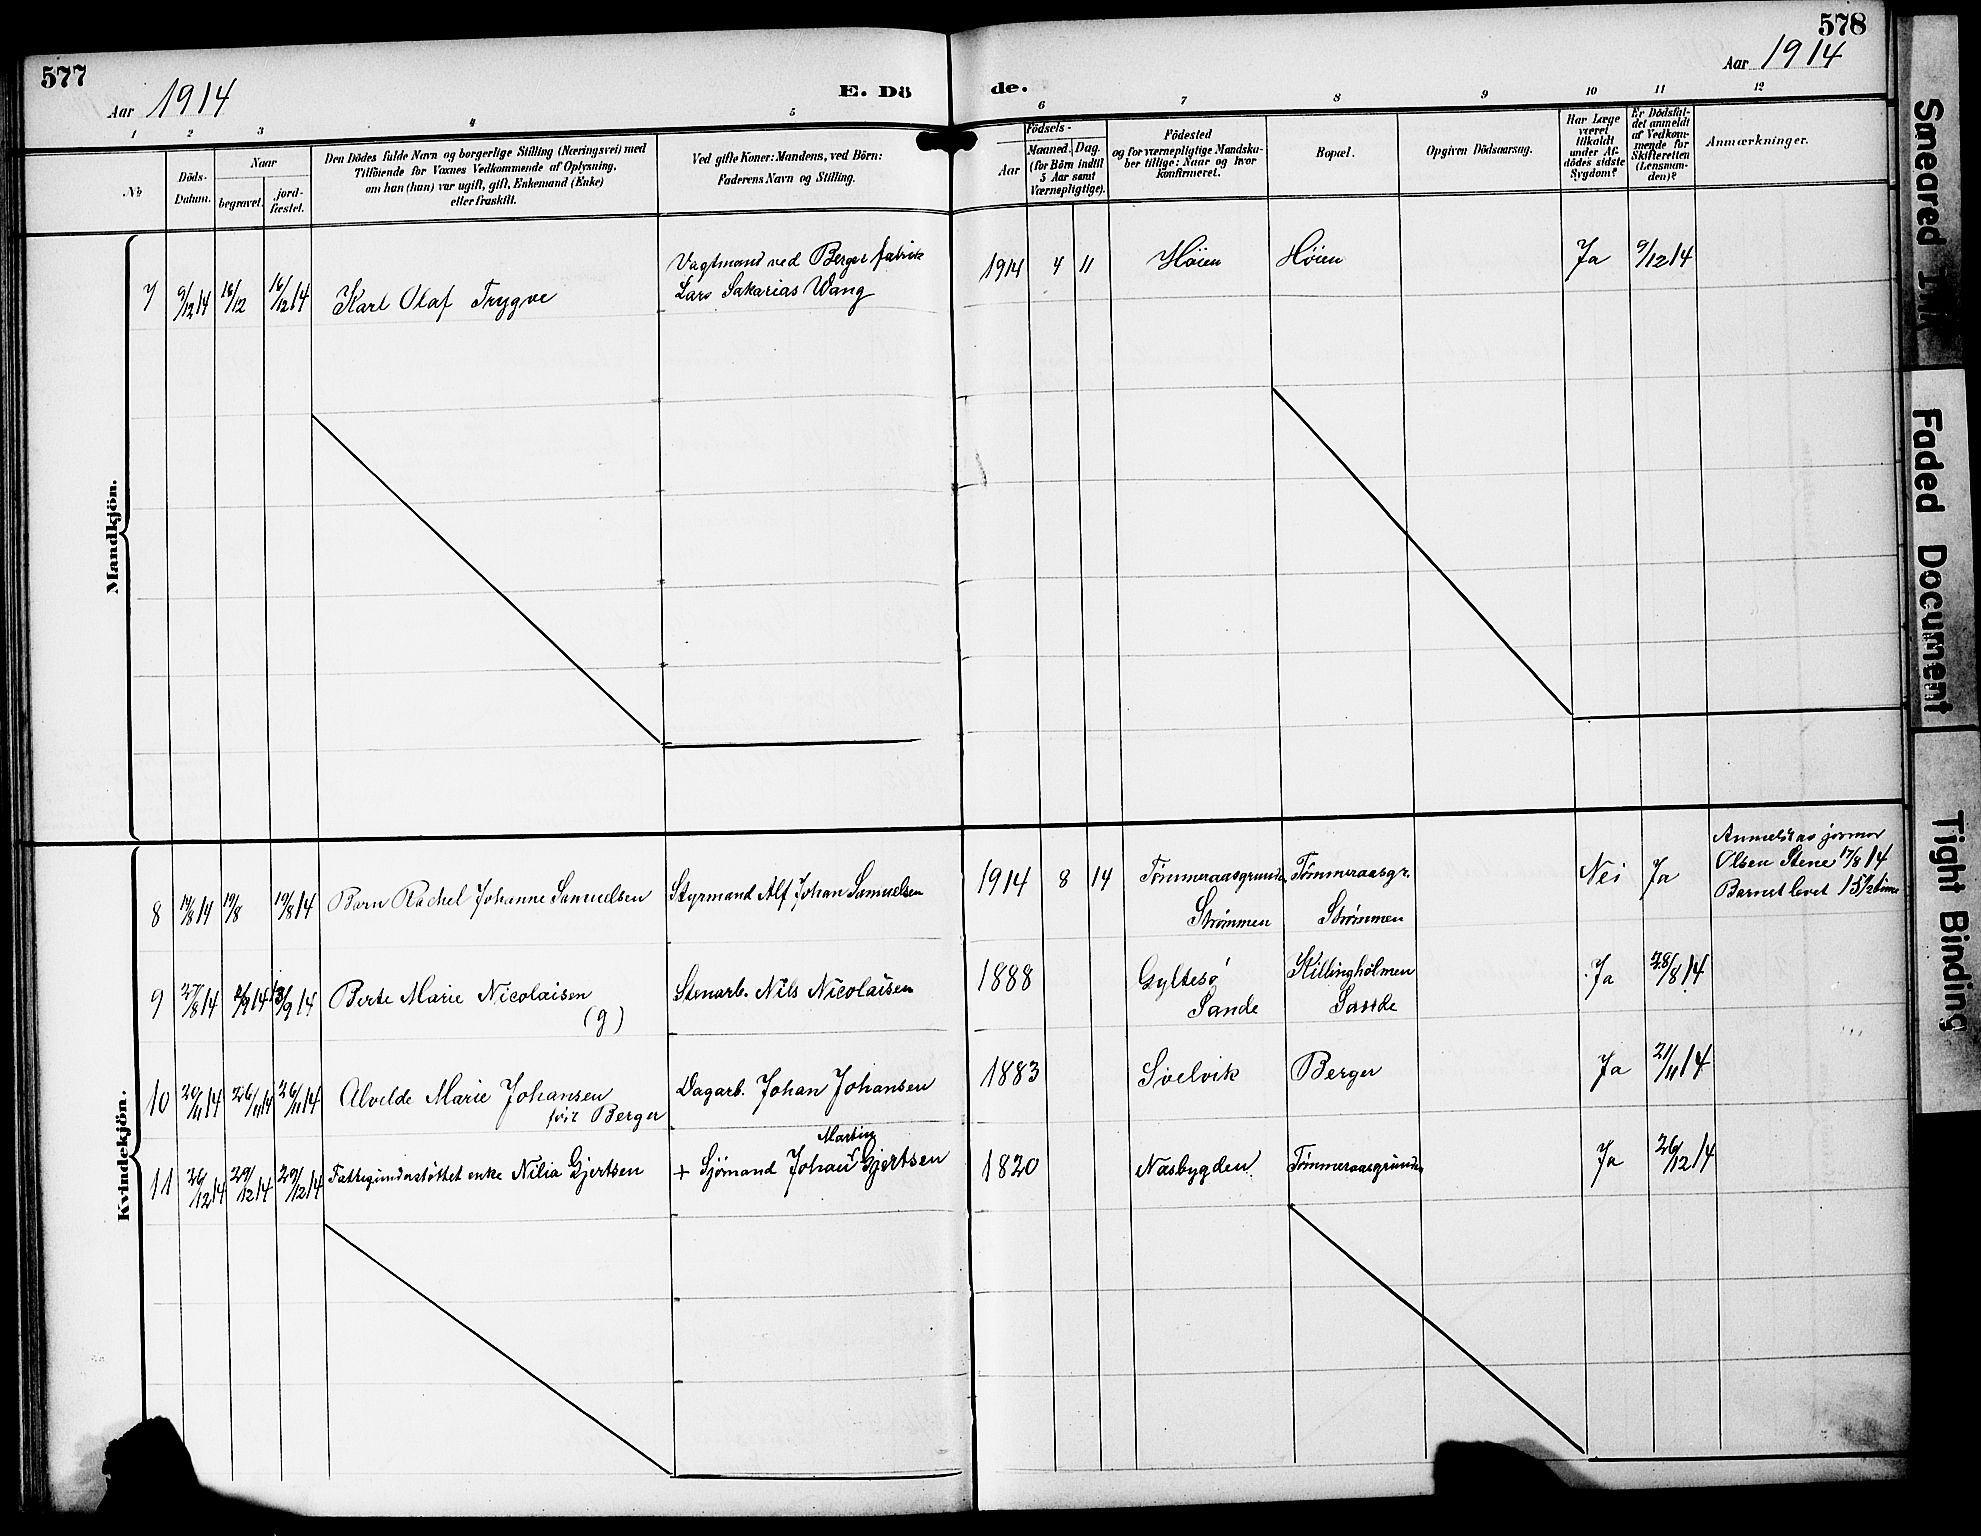 577
Aar 1914
E. Dö
de.
578
Aar 1914
1 2 3 4 5 6 7 8 9 10 11 12
No.
Döds-
Datum.
Naar
begravet.
jord-
fæstet.
Den Dödes fulde Navn og borgerlige Stilling (Næringsvei) med
Tilföiende for Voxnes Vedkommende af Oplysning,
om hun (han) var ugift, gift, Enkemand (Enke)
eller fraskilt.
Ved gifte Koner: Mandens, ved Börn:
Faderens Navn og Stilling.
Födsels-
Aar
Maaned. Dag.
(for Börn indtil
5 Aar samt
Værnepligtige).
Födested
og for værnepligtige Mandska-
ber tillige: Naar og hvor
konfirmeret.
Bopæl.
Opgiven Dödsaarsag.
Har Læge
været
tilkaldt
under Af-
dödes sidste
Sygdom?
Er Dödsfal-
det anmeldt
af Vedkom-
mende for
Skifteretten
(Lensman-
den)?
Anmærkninger.
Mandkjön.
7 9/12 14 16/12 16/12 14 Karl Olaf Trygve
Vagtmand ved Berger fabrik
Lars Sakarias Wang
1914 4 11 Høien Høien Ja 9/12 14
Kvindekjön.
8 14/8 14 19/8 19/8 14 Barn Rachel Johanne Samuelsen Styrmand Alf Johan Samuelsen
1914 8 14 Tømmeraasgrunden
Strømmen
Tømmeraasgr.
Strømmen
Nei Ja
Anmeldt av jormor
Olsen Stene 17/8 14
Barnet levet 1 5 1/2 time
9 27/8 14 2/9 14 13/9 14 Berte Marie Nicolaisen
(g)
Stenarb. Nils Nicolaisen
1888 Gyltesø
Sande
Killingholmen
Sande
Ja 28/8 14
10 20/11 14 26/11 14 26/11 14 Alvilde Marie Johansen
født Berger
Dagarb. Johan Johansen
1883 Svelvik Berger Ja 21/11 14
11 26/12 14 29/12 14 29/12 14 Fattigunderstøttet enke Nilia Gjertsen
Martin
+ Sjømand Johan Gjertsen
1820 Nasbygden Tømmeraasgrunden Ja 26/12 14
Smeared Ink
Faded Document
Tight Binding